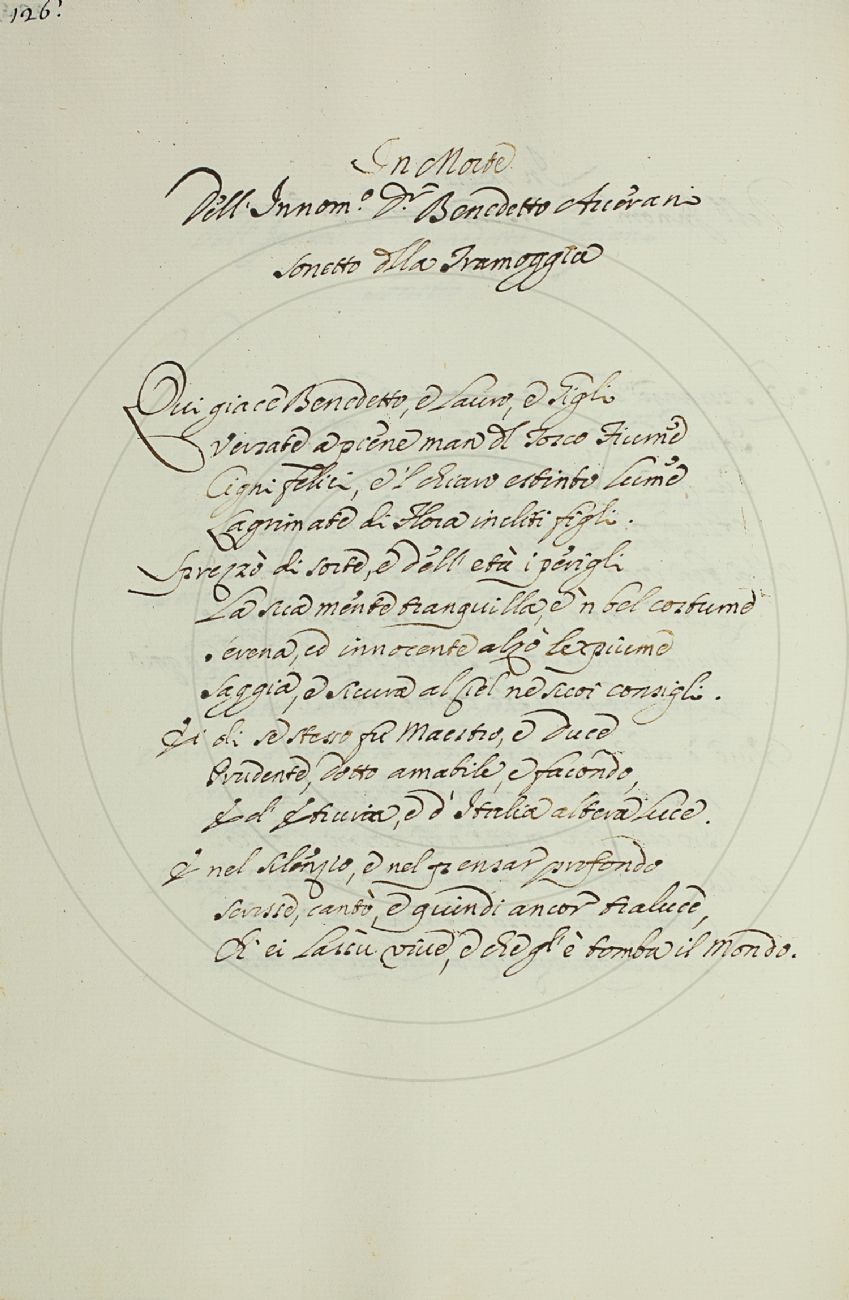 126.
In Morte
Dell' Innom.º Dr. Benedetto Averani
Sonetto dlla Tramoggia
Qui giace Benedetto, e Lauro, e Gigli
Versate a piene man dl Tosco Fiume
Cigni felici, e 'l chiaro estinto Lume
Lagrimate di Flora incliti figli.
Sprezzò di sorte, e dell' età i perigli
La sua mente tranquilla, e 'n bel costume
Serena, ed innocente alzò le piume
Saggia, e sicura al Ciel ne suoi consigli.
Ei di se stesso fu Maestro, e Duce
Prudente, dotto amabile, e facondo,
E d' Etruria, e d' Italia altera Luce.
E nel silenzio, e nel pensar profondo
Scrisse, cantò, e quindi ancor traluce,
Ch' ei Lassù vive, e che gl' è tomba il Mondo.